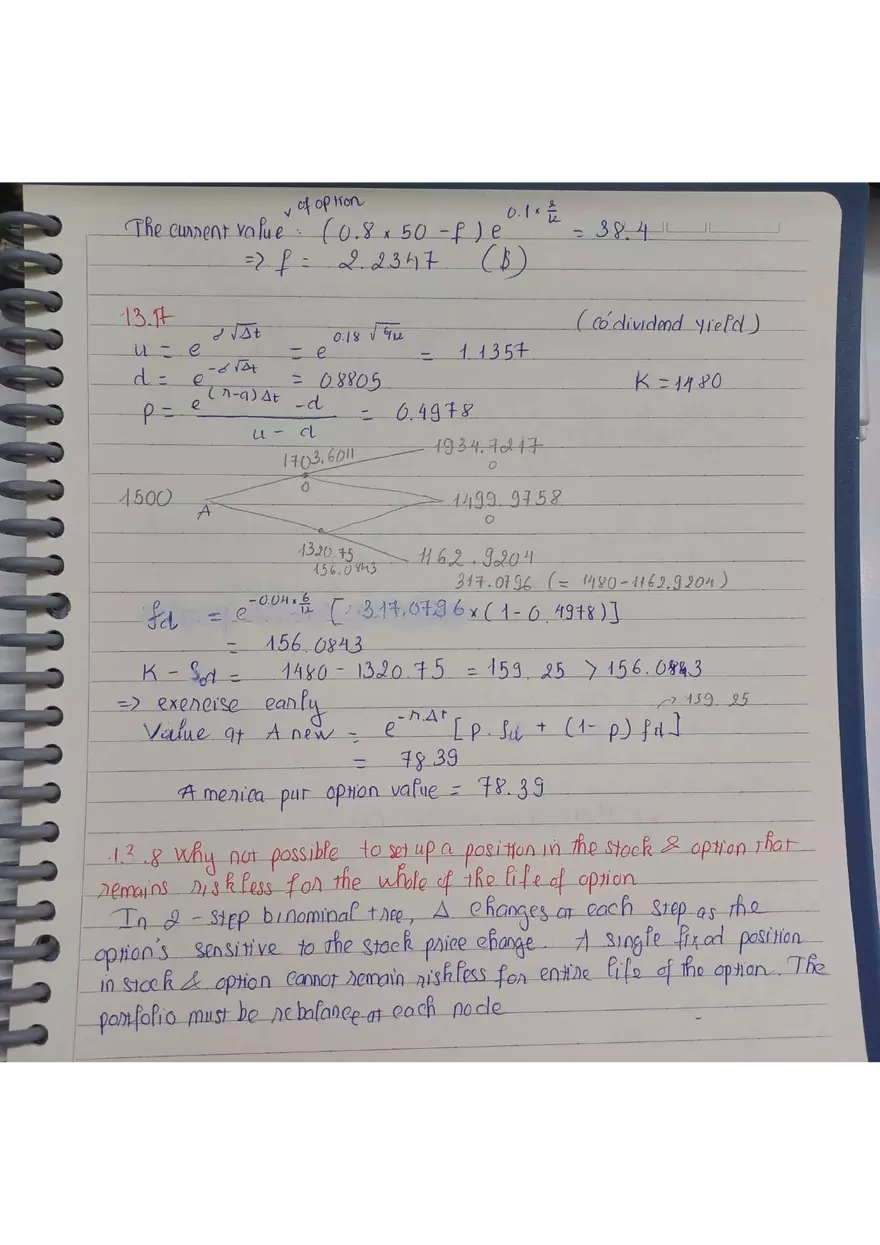 of option
The current value : (0.8 × 50 - f) e^{0.1 × 2/12} = 38.4
=> f = 2.2347 ($)
13.17 (có dividend yield)
u = e^{σ√Δt} = e^{0.18 √6/12} = 1.1357
d = e^{-σ√Δt} = 0.8805 K = 1480
p = \frac{e^{(r-q)Δt} - d}{u - d} = 0.4978
1703.6011 1934.7217
0 0
1500 A 1499.9758
0
1320.75 1162.9204
156.0843 317.0796 (= 1480 - 1162.9204)
fd = e^{-0.04 × 6/12} [ 317.0796 × (1 - 0.4978)]
= 156.0843
K - Sd = 1480 - 1320.75 = 159.25 > 156.0843
=> exercise early → 159.25
Value at A new = e^{-r.Δt} [p. fu + (1- p) fd]
= 78.39
America put option value = 78.39
13.8 Why not possible to set up a position in the stock & option that
remains riskless for the whole of the life of option
In 2-step binominal tree, Δ changes at each step as the
option's sensitive to the stock price change. A single fixed position
in stock & option cannot remain riskless for entire life of the option. The
portfolio must be rebalance at each node